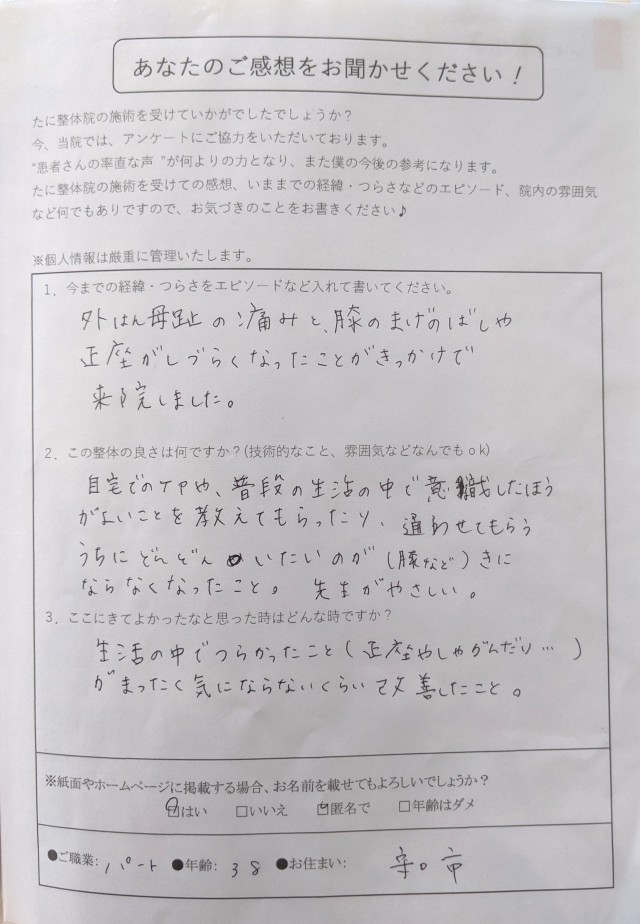 あなたのご感想をお聞かせください！
たに整体院の施術を受けていかがでしたでしょうか？
今、当院では、アンケートにご協力をいただいております。
“患者さんの率直な声 ”が何よりの力となり、また僕の今後の参考になります。
たに整体院の施術を受けての感想、いままでの経緯・つらさなどのエピソード、院内の雰囲気
など何でもありですので、お気づきのことをお書きください♪
※個人情報は厳重に管理いたします。
1．今までの経緯・つらさをエピソードなど入れて書いてください。
外はん母趾の痛みと、膝のまげのばしや
正座がしづらくなったことがきっかけで
来院しました。
2．この整体の良さは何ですか？(技術的なこと、雰囲気などなんでもｏｋ)
自宅でのケアや、普段の生活の中で意識したほう
がよいことを教えてもらったり、通わせてもらう
うちにどんどんいたいのが(膝など)きに
ならなくなったこと。 先生がやさしい。
3．ここにきてよかったなと思った時はどんな時ですか？
生活の中でつらかったこと(正座やしゃがんだり…)
がまったく気にならないくらい改善したこと。
※紙面やホームページに掲載する場合、お名前を載せてもよろしいでしょうか？
☑はい □いいえ ☑匿名で □年齢はダメ
●ご職業: パート ●年齢: 38 ●お住まい: 守口市